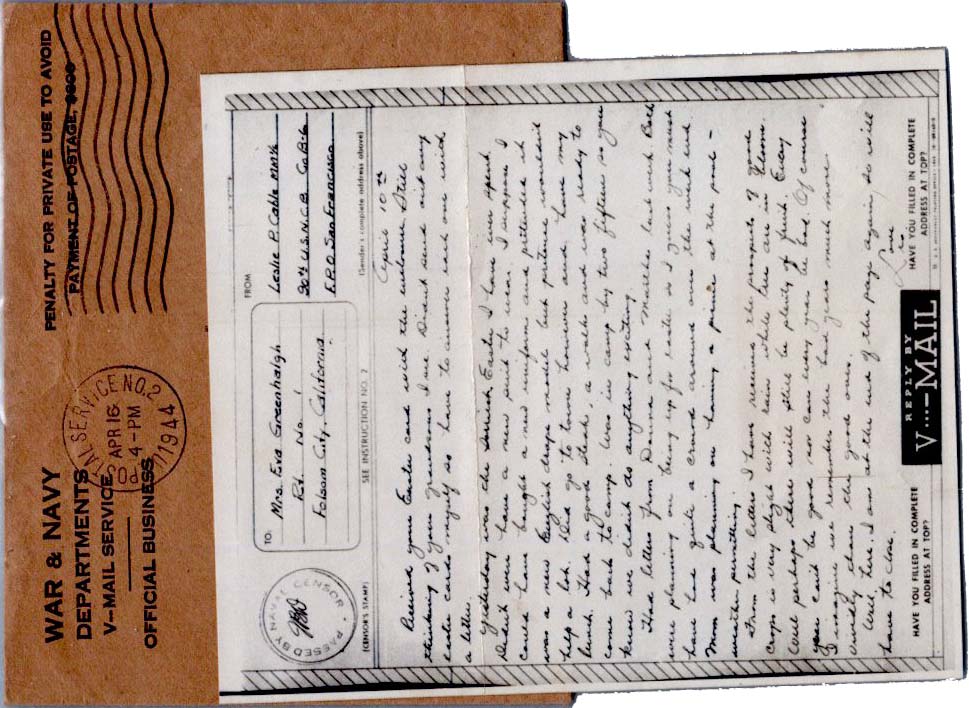 WAR & NAVY
DEPARTMENTS
V-MAIL SERVICE
OFFICIAL BUSINESS
PENALTY FOR PRIVATE USE TO AVOID
PAYMENT OF POSTAGE, $300
SERVICE NO. 2
APR 16
4-PM
1944
PASSED BY NAVAL CENSOR
(CENSOR'S STAMP)
TO:
Mrs. Eva Greenhalgh
Rt. No. 1
Folsom City, California
SEE INSTRUCTION NO. 2
FROM
Leslie P. Cable MM1/c
20th U.S.N.C.B. Co. B-6
F.P.O. San Francisco
(Sender's complete address above)
April 10th
Received your Easter card with the welcome Still
thinking of your grandsons I see. Didn't send out any
easter cards myself so have to answer each one with
a letter.
Yesterday was the Easter I have ever spent.
Didn't even have a new suit to wear. I suppose I
could have bought a new uniform and pretended it
was a new English drape model but pretense wouldn't
help a lot. Did go to town however and have my
lunch. Had a good steak, a walk and was ready to
come back to camp. Was in camp by two fifteen so you
know we didn't do anything exciting.
Had letters from Donna and last week. Both
were planning on being up for easter so I guess you must
have had quite a crowd around over the week end.
Mom was planning on having a picnic at the pool -
weather permitting.
From the letters I have received the prospects of good
crops is very slight with rain while trees are in bloom.
Well perhaps there will still be plenty of fruit. Every
year can't be good nor can every year be bad. Of course
I imagine we remember the bad years much more
vividly than the good ones.
Well, here I am at the end of the page again, so will
have to close.
Love
Les
HAVE YOU FILLED IN COMPLETE
ADDRESS AT TOP?
REPLY BY
V···—MAIL
HAVE YOU FILLED IN COMPLETE
ADDRESS AT TOP?